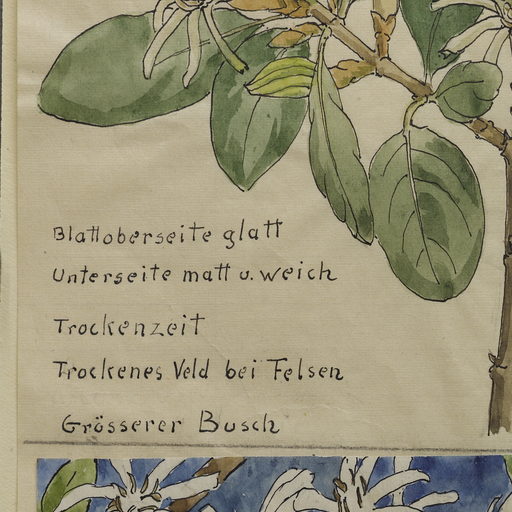 Blattoberseite glatt
Unterseite matt u. weich
Trockenzeit
Trockenes Veld bei Felsen
Grösserer Busch